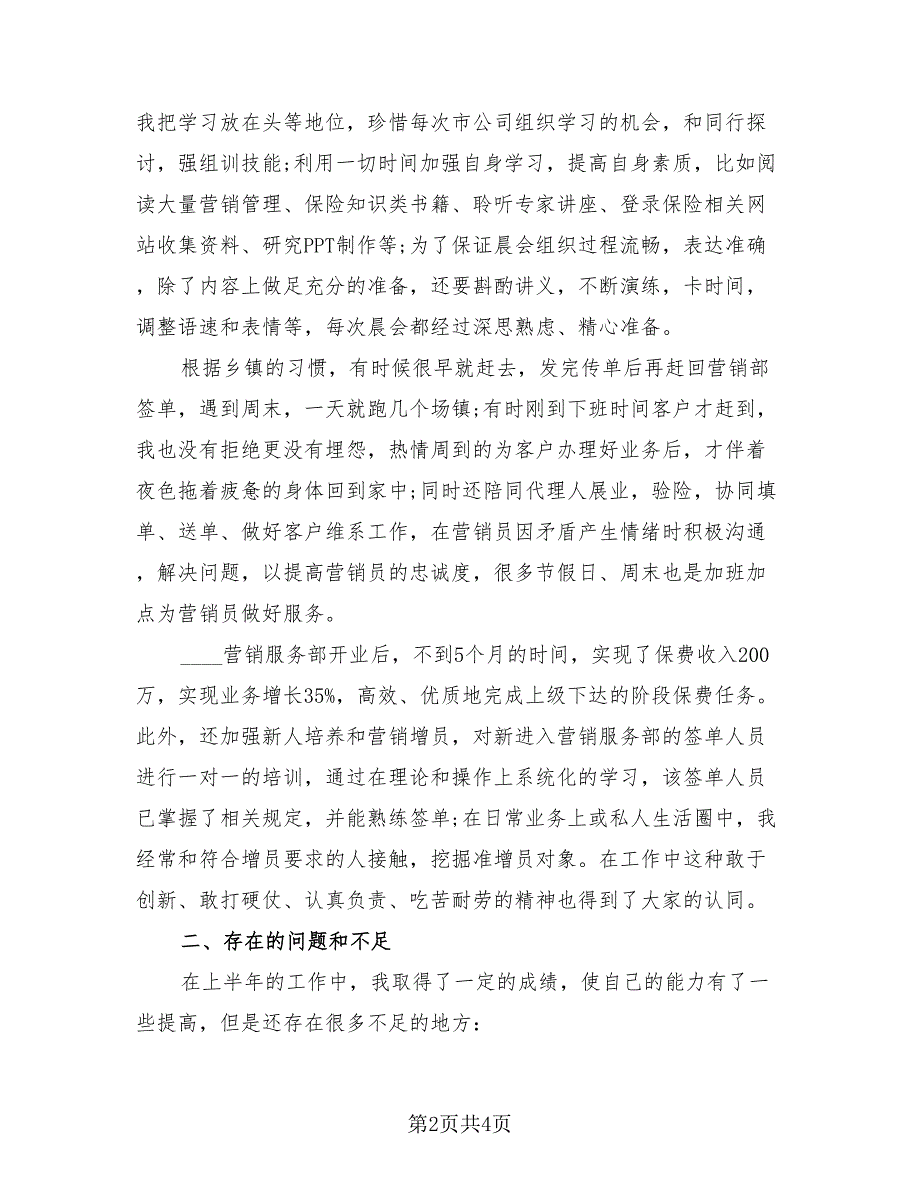 我把学习放在头等地位，珍惜每次市公司组织学习的机会，和同行探
讨，强组训技能;利用一切时间加强自身学习，提高自身素质，比如阅
读大量营销管理、保险知识类书籍、聆听专家讲座、登录保险相关网
站收集资料、研究PPT制作等;为了保证晨会组织过程流畅，表达准确
，除了内容上做足充分的准备，还要斟酌讲义，不断演练，卡时间，
调整语速和表情等，每次晨会都经过深思熟虑、精心准备。
根据乡镇的习惯，有时候很早就赶去，发完传单后再赶回营销部
签单，遇到周末，一天就跑几个场镇;有时刚到下班时间客户才赶到，
我也没有拒绝更没有埋怨，热情周到的为客户办理好业务后，才伴着
夜色拖着疲惫的身体回到家中;同时还陪同代理人展业，验险，协同填
单、送单、做好客户维系工作，在营销员因矛盾产生情绪时积极沟通
，解决问题，以提高营销员的忠诚度，很多节假日、周末也是加班加
点为营销员做好服务。
____营销服务部开业后，不到5个月的时间，实现了保费收入200
万，实现业务增长35%，高效、优质地完成上级下达的阶段保费任务。
此外，还加强新人培养和营销增员，对新进入营销服务部的签单人员
进行一对一的培训，通过在理论和操作上系统化的学习，该签单人员
已掌握了相关规定，并能熟练签单;在日常业务上或私人生活圈中，我
经常和符合增员要求的人接触，挖掘准增员对象。在工作中这种敢于
创新、敢打硬仗、认真负责、吃苦耐劳的精神也得到了大家的认同。
二、存在的问题和不足
在上半年的工作中，我取得了一定的成绩，使自己的能力有了一
些提高，但是还存在很多不足的地方：
第2页共4页